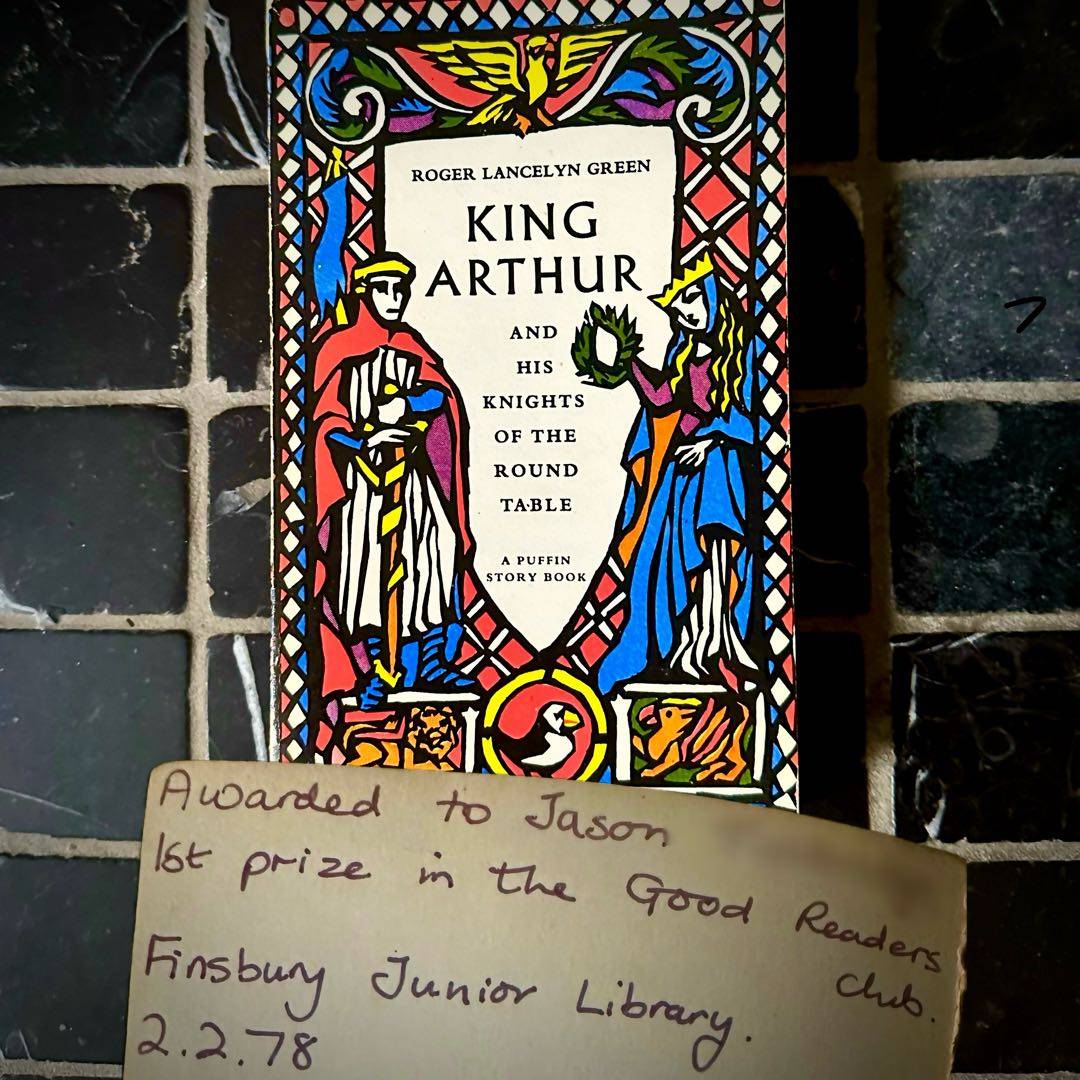 ROGER LANCELYN GREEN
KING
ARTHUR
AND
HIS
KNIGHTS
OF THE
ROUND
TABLE
A PUFFIN
STORY BOOK
Awarded to Jason
1st prize in the Good Readers
Club.
Finsbury Junior Library.
2.2.78